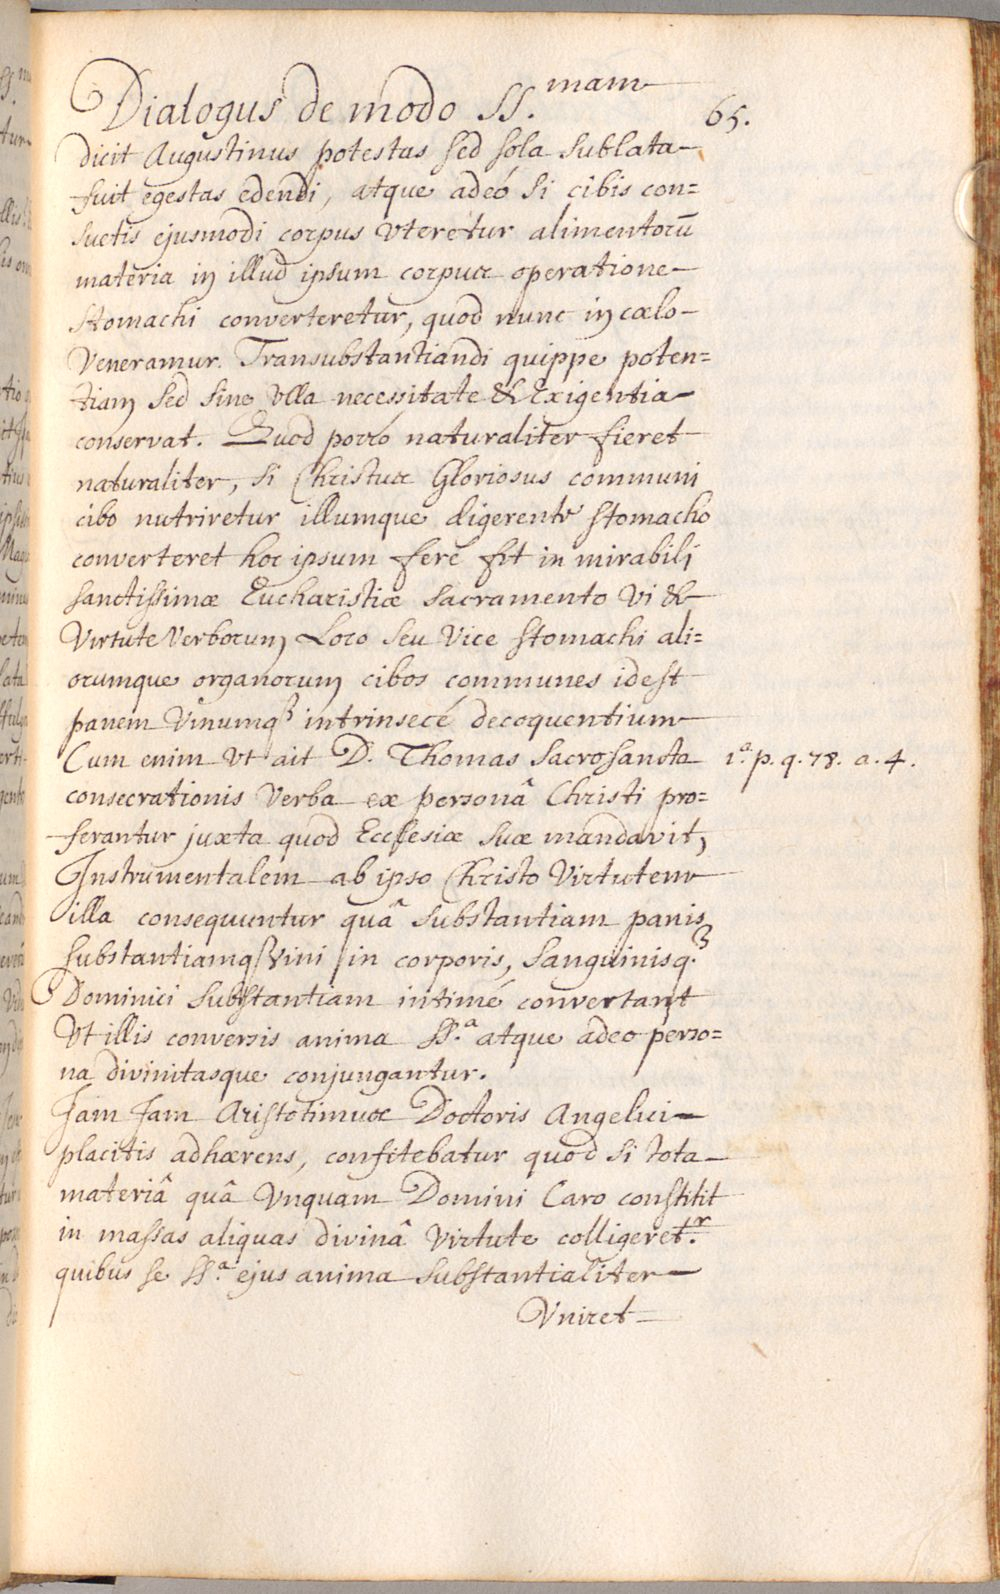 Dialogus de modo SS.mam
65.
dicit Augustinus potestas sed sola sublata
fuit egestas edendi, atque adeó si cibis con=
suetis ejusmodi corpus vteretur alimentorū
materia in illud ipsum corpus operatione
stomachi converteretur, quod nunc in cœlo
Veneramur. Transubstantiandi quippe poten=
tiam sed sine vlla necessitate & Exigentia
conservat. Quod porró naturaliter fieret
naturaliter, si Christus Gloriosus communi
cibo nutriretur illumque digerente stomacho
converteret hoc ipsum feré fit in mirabili
sanctissimæ Eucharistiæ sacramento vi &
Virtute Verborum Loco seu Vice stomachi ali=
orumque organorum cibos communes idest
panem Vinumqȝ intrinsecé decoquentium
Cum enim vt ait D. Thomas Sacrosancta 1.ª p. q. 78. a. 4.
consecrationis Verba ex personâ Christi pro=
ferantur juxta quod Ecclesiæ suæ mandavit,
Instrumentalem ab ipso Christo Virtutem
illa consequuntur quâ substantiam panis
substantiamqȝ Vini in corporis, Sanguinisqȝ
Dominici substantiam intimé convertant
Vt illis conversis anima SS.ª atque adeo perso=
na divinitasque conjungantur.
Jam Jam Aristotimus Doctoris Angelici
placitis adhærens, confitebatur quod si tota
materiâ quâ Vnquam Domini Caro constitit
in massas aliquas divinâ Virtute colligeret.r
quibus se SS.ª ejus anima substantialiter
Vniret